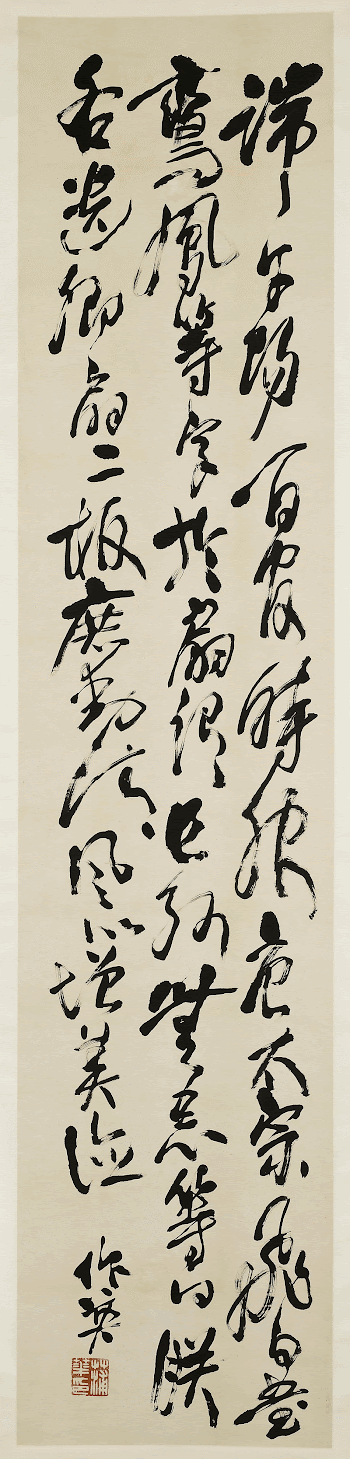 端午賜百官時服唐太宗飛白書
鸞鳳等字於扇謂長孫無忌等曰朕
各遺卿扇二枚庶動清風以增美德
作英